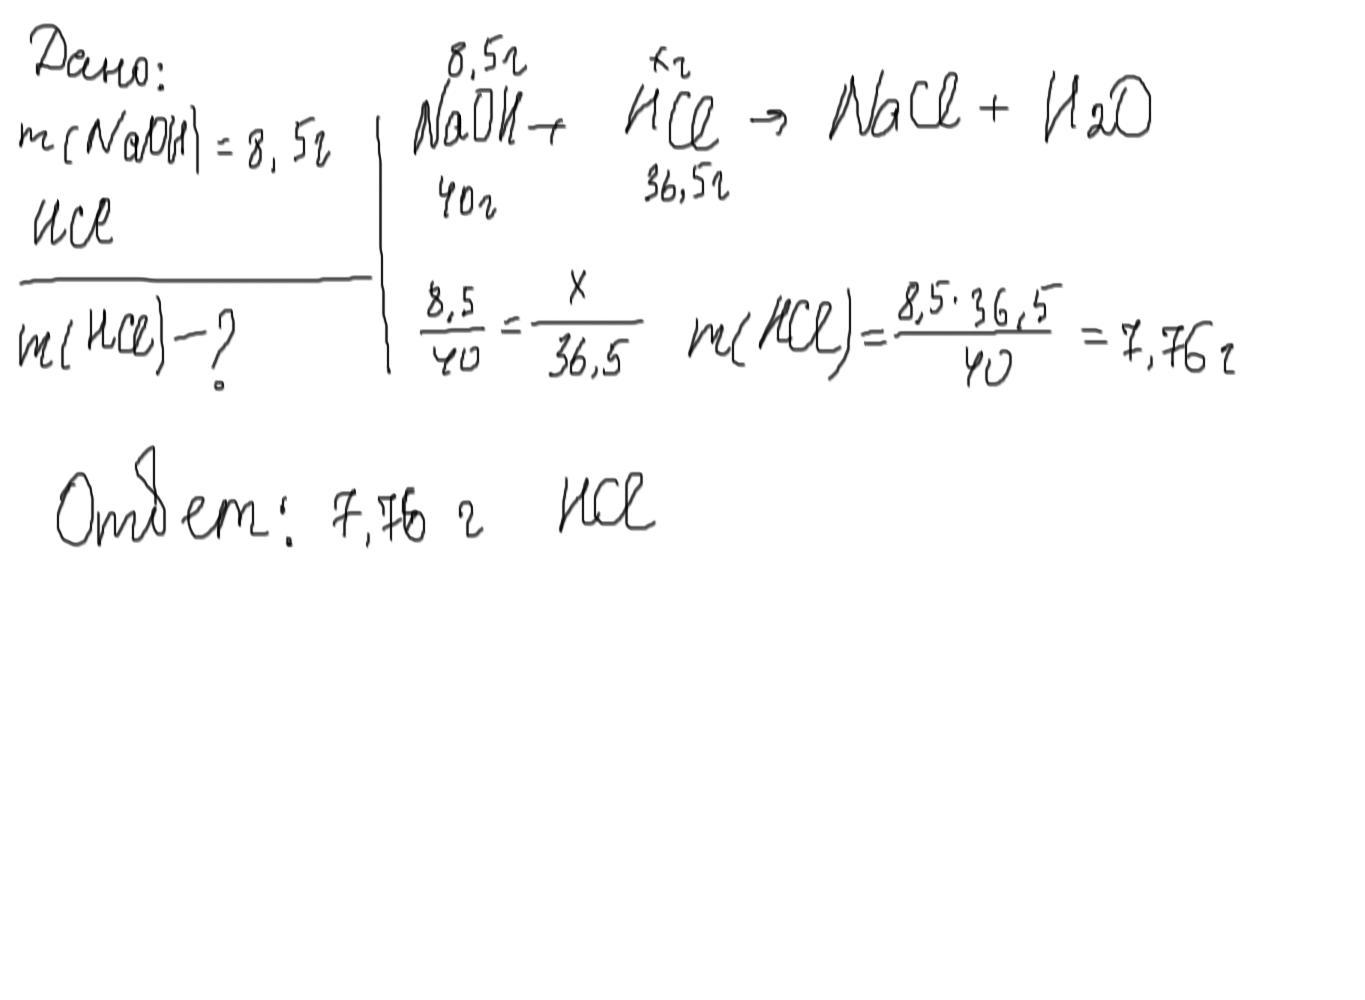 Дано:
m(NaOH) = 8,5г
HCl
m(HCl) - ?
8,5г xг
NaOH + HCl → NaCl + H2O
40г 36,5г
8,5/40 = x/36,5 m(HCl) = 8,5·36,5/40 = 7,76 г
Ответ: 7,76 г HCl